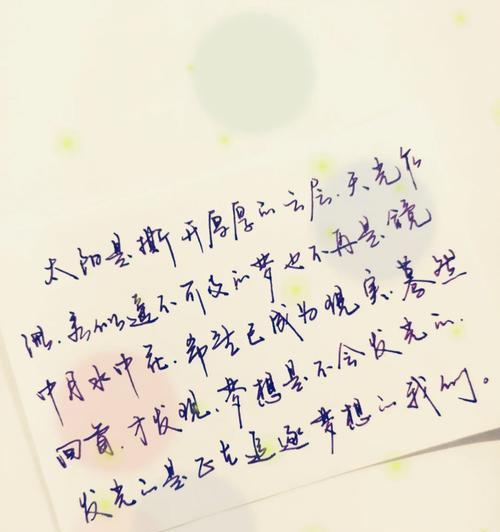 太阳是撕开厚厚的云层.天光乍
泄.看似遥不可及的梦也不再是镜
中月水中花.希望已成为现实.蓦然
回首.才发现.梦想是不会发光的.
发光的是正在追逐梦想的我们。